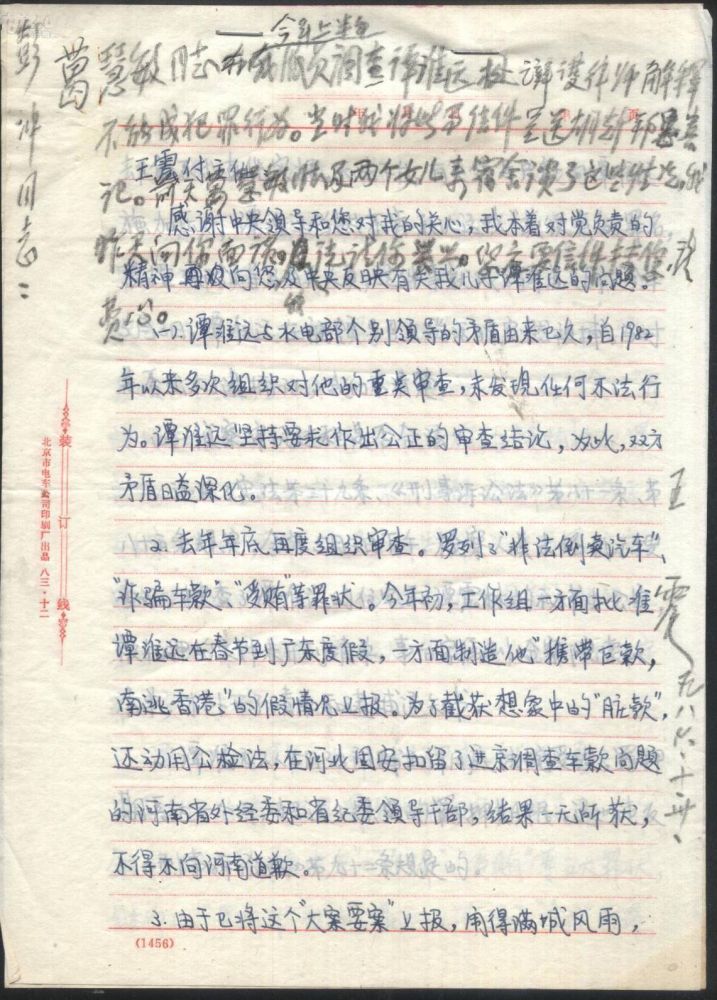 彭冲同志：
今年上半年
葛慧敏同志 调查谭淮远 辩护律师解释
不能成犯罪行为。当时我将此事信件 送胡
记。 两个女儿来宿舍谈了这些情况。我
昨天向你面谈。 信件转你，
费心。
王震 一九八六·十
王震付主任：
感谢中央领导和您对我的关心，我本着对党负责的
精神再次向您及中央反映有关我儿子谭淮远的问题。
(一)、谭淮远与水电部个别领导的矛盾由来已久，自1982
年以来多次组织对他的重点审查，未发现任何不法行
为。谭淮远坚持要求作出公正的审查结论，为此，双方
矛盾日益深化。
2. 去年年底再度组织审查。罗列了“非法倒卖汽车”、
“诈骗车款”、“受贿”等罪状。今年初，工作组一方面批准
谭淮远在春节到广东度假，一方面制造他“携带巨款，
南逃香港”的假情况上报。为了截获想象中的“脏款”，
还动用公检法，在河北固安扣留了进京调查车款问题
的河南省外经委和省纪委领导干部，结果一无所获，
不得不向河南道歉。
3. 由于已将这个“大案要案”上报，闹得满城风雨，
装订线
北京市电车公司印刷厂出品 八三·十二
(1456)